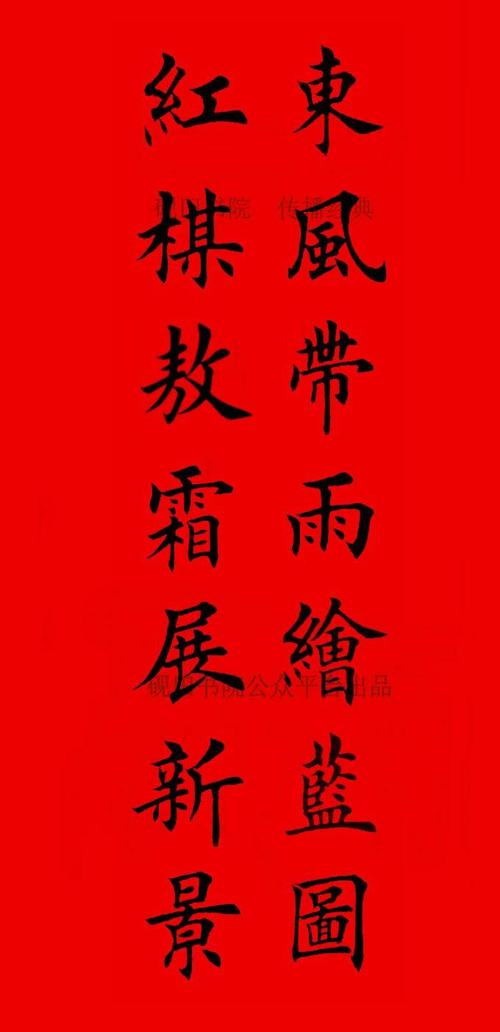 東風帶雨繪藍圖
紅楳敖霜展新景
砚田书院 传播经典
砚田书院公众平台出品